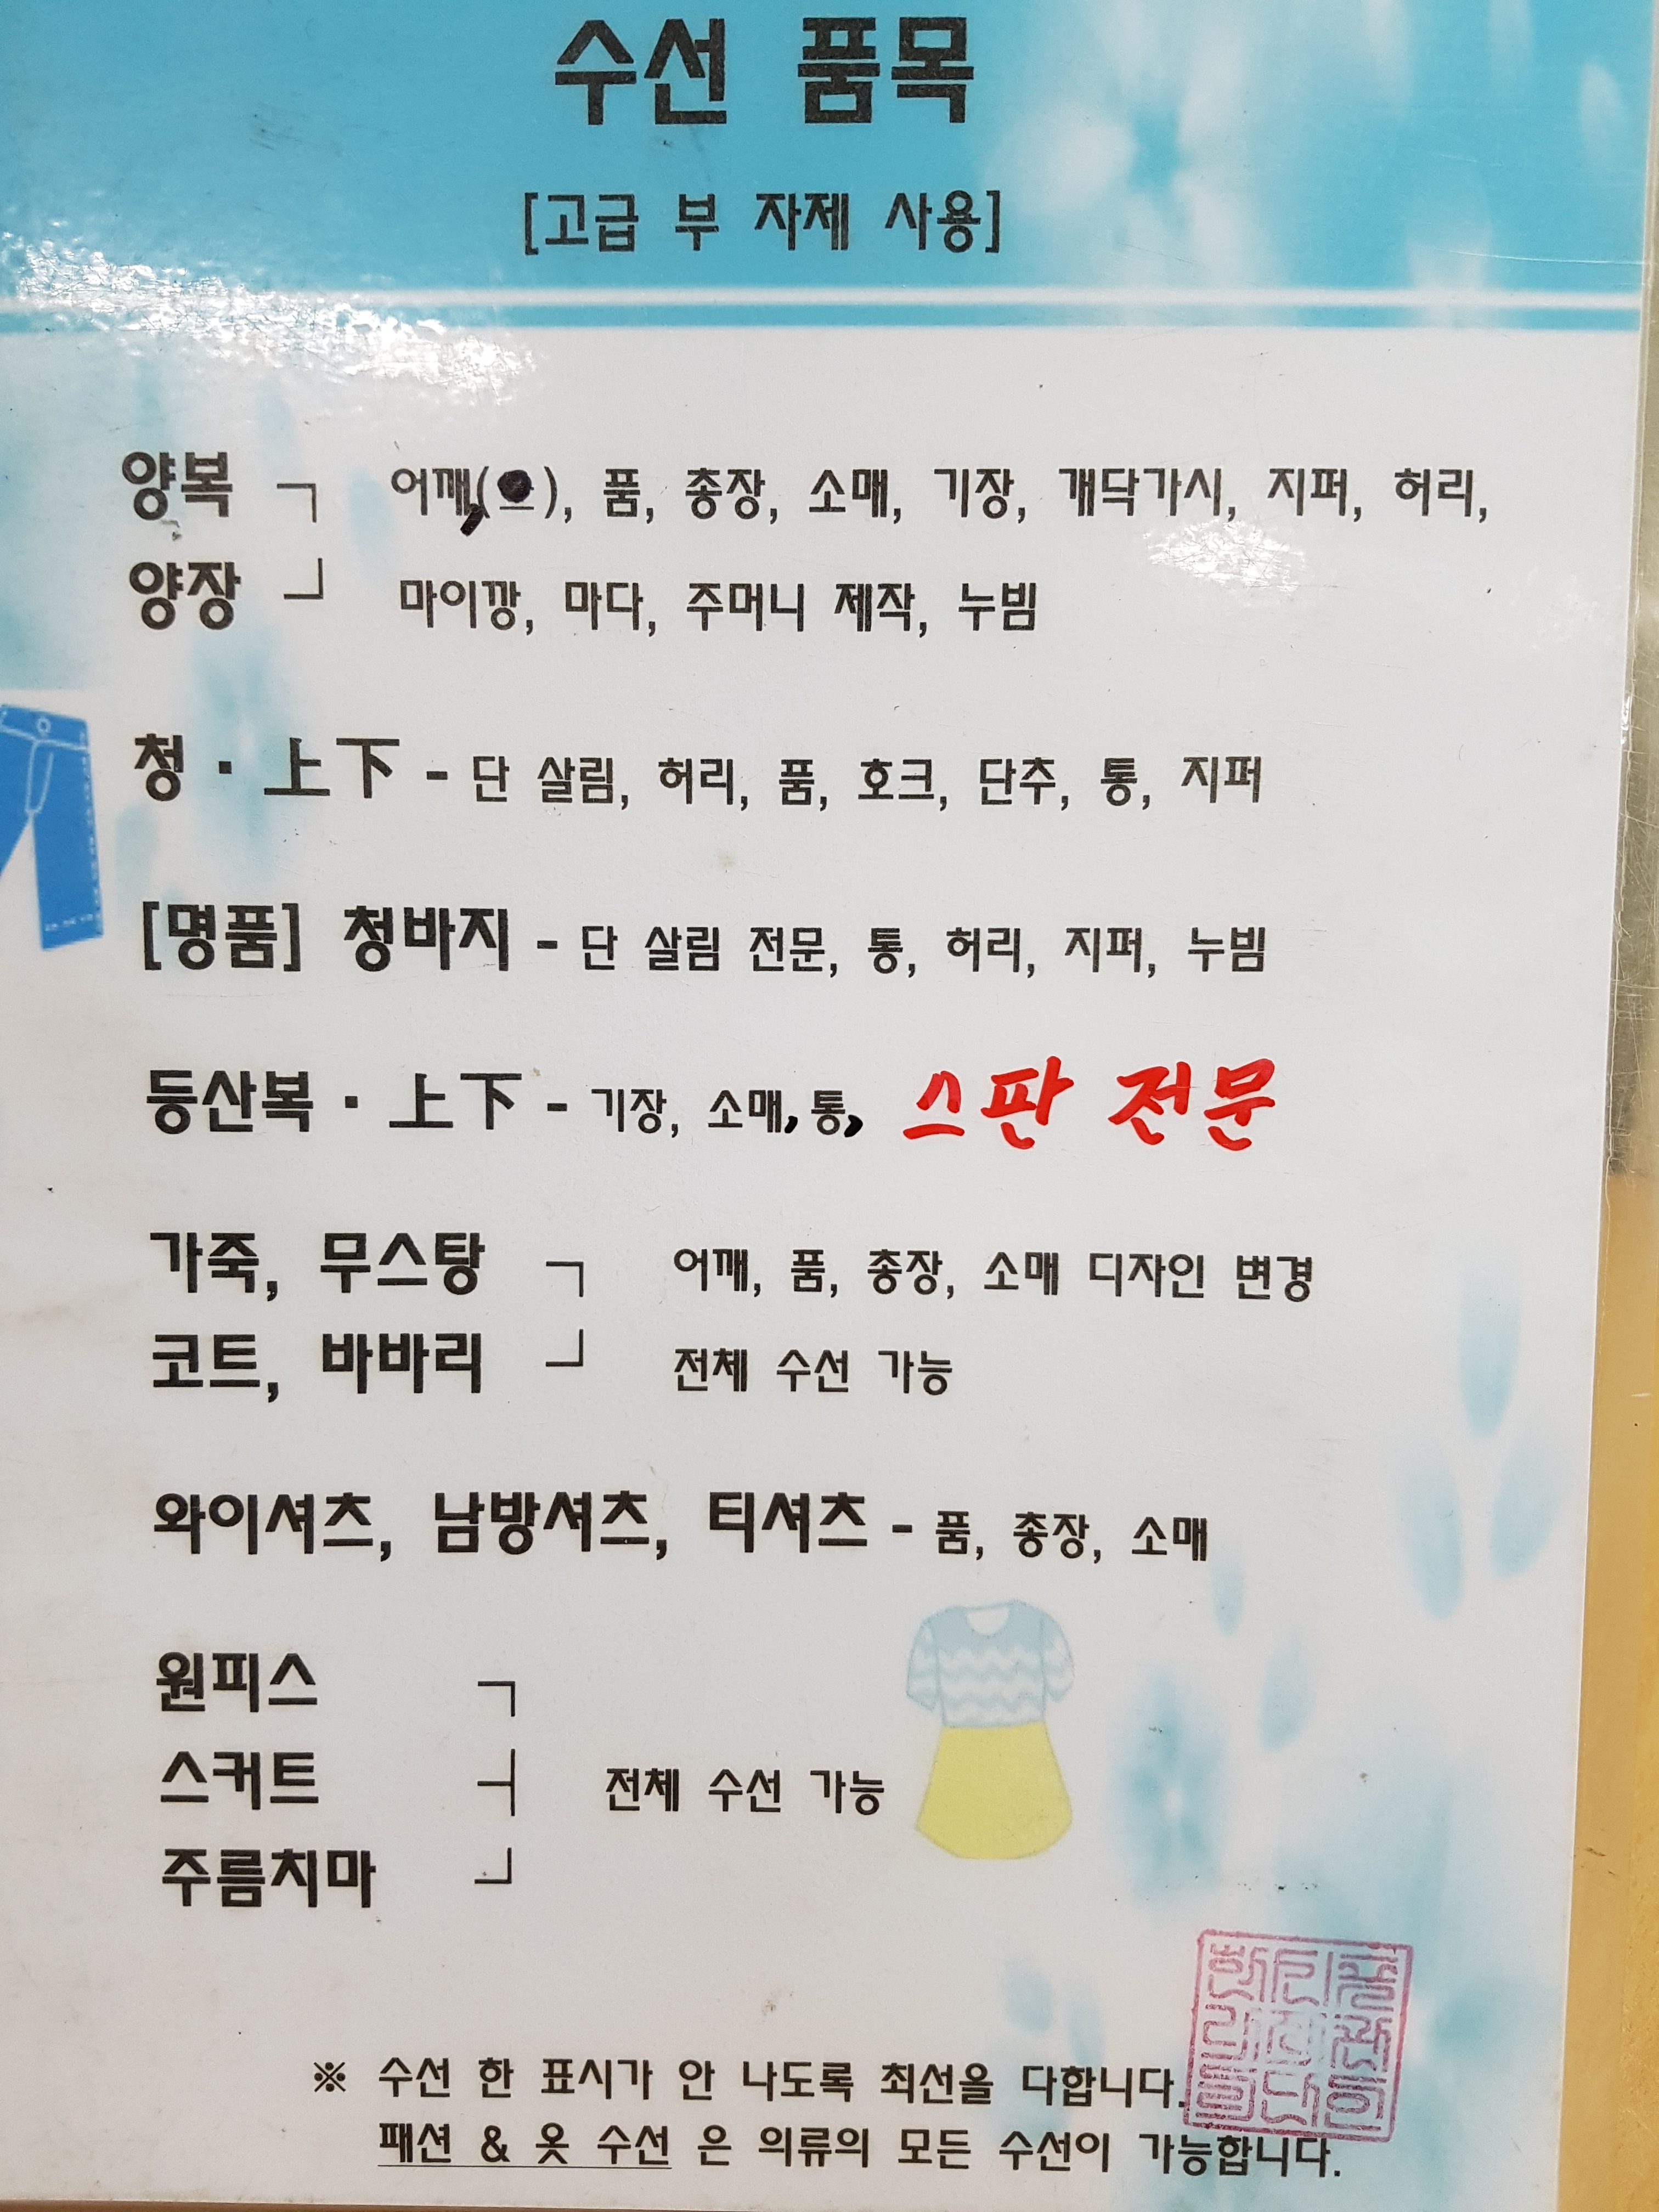 수선 품목
[고급 부 자제 사용]
양복 ㄱ 어깨,( ), 품, 총장, 소매, 기장, 개닥가시, 지퍼, 허리,
양장 ┘ 마이깡, 마다, 주머니 제작, 누빔
청 · 上下 - 단 살림, 허리, 품, 호크, 단추, 통, 지퍼
[명품] 청바지 - 단 살림 전문, 통, 허리, 지퍼, 누빔
등산복 · 上下 - 기장, 소매, 통, 스판 전문
가죽, 무스탕 ㄱ 어깨, 품, 총장, 소매 디자인 변경
코트, 바바리 ┘ 전체 수선 가능
와이셔츠, 남방셔츠, 티셔츠 - 품, 총장, 소매
원피스 ㄱ
스커트 ┤ 전체 수선 가능
주름치마 ┘
※ 수선 한 표시가 안 나도록 최선을 다합니다.
패션 & 옷 수선 은 의류의 모든 수선이 가능합니다.